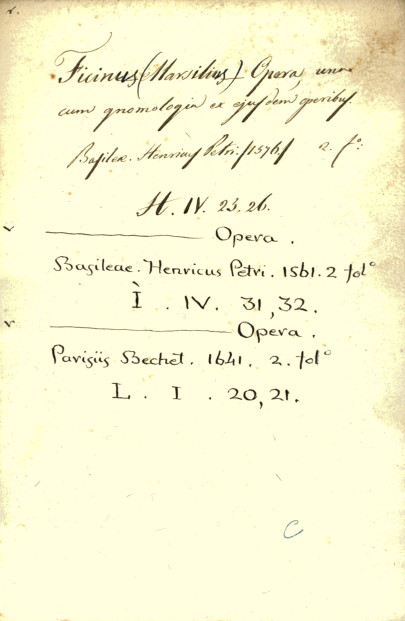 Ficinus (Marsilius) Opera, una
cum gnomologia ex ejusdem operibus.
Basileae. Henricus Petri. /1576/ 2. fº.
H. IV. 25. 26.
Opera.
Basileae. Henricus Petri. 1561. 2 folº
Ì. IV. 31, 32.
Opera.
Parisiis Bechet. 1641. 2. folº
L. I. 20, 21.
C